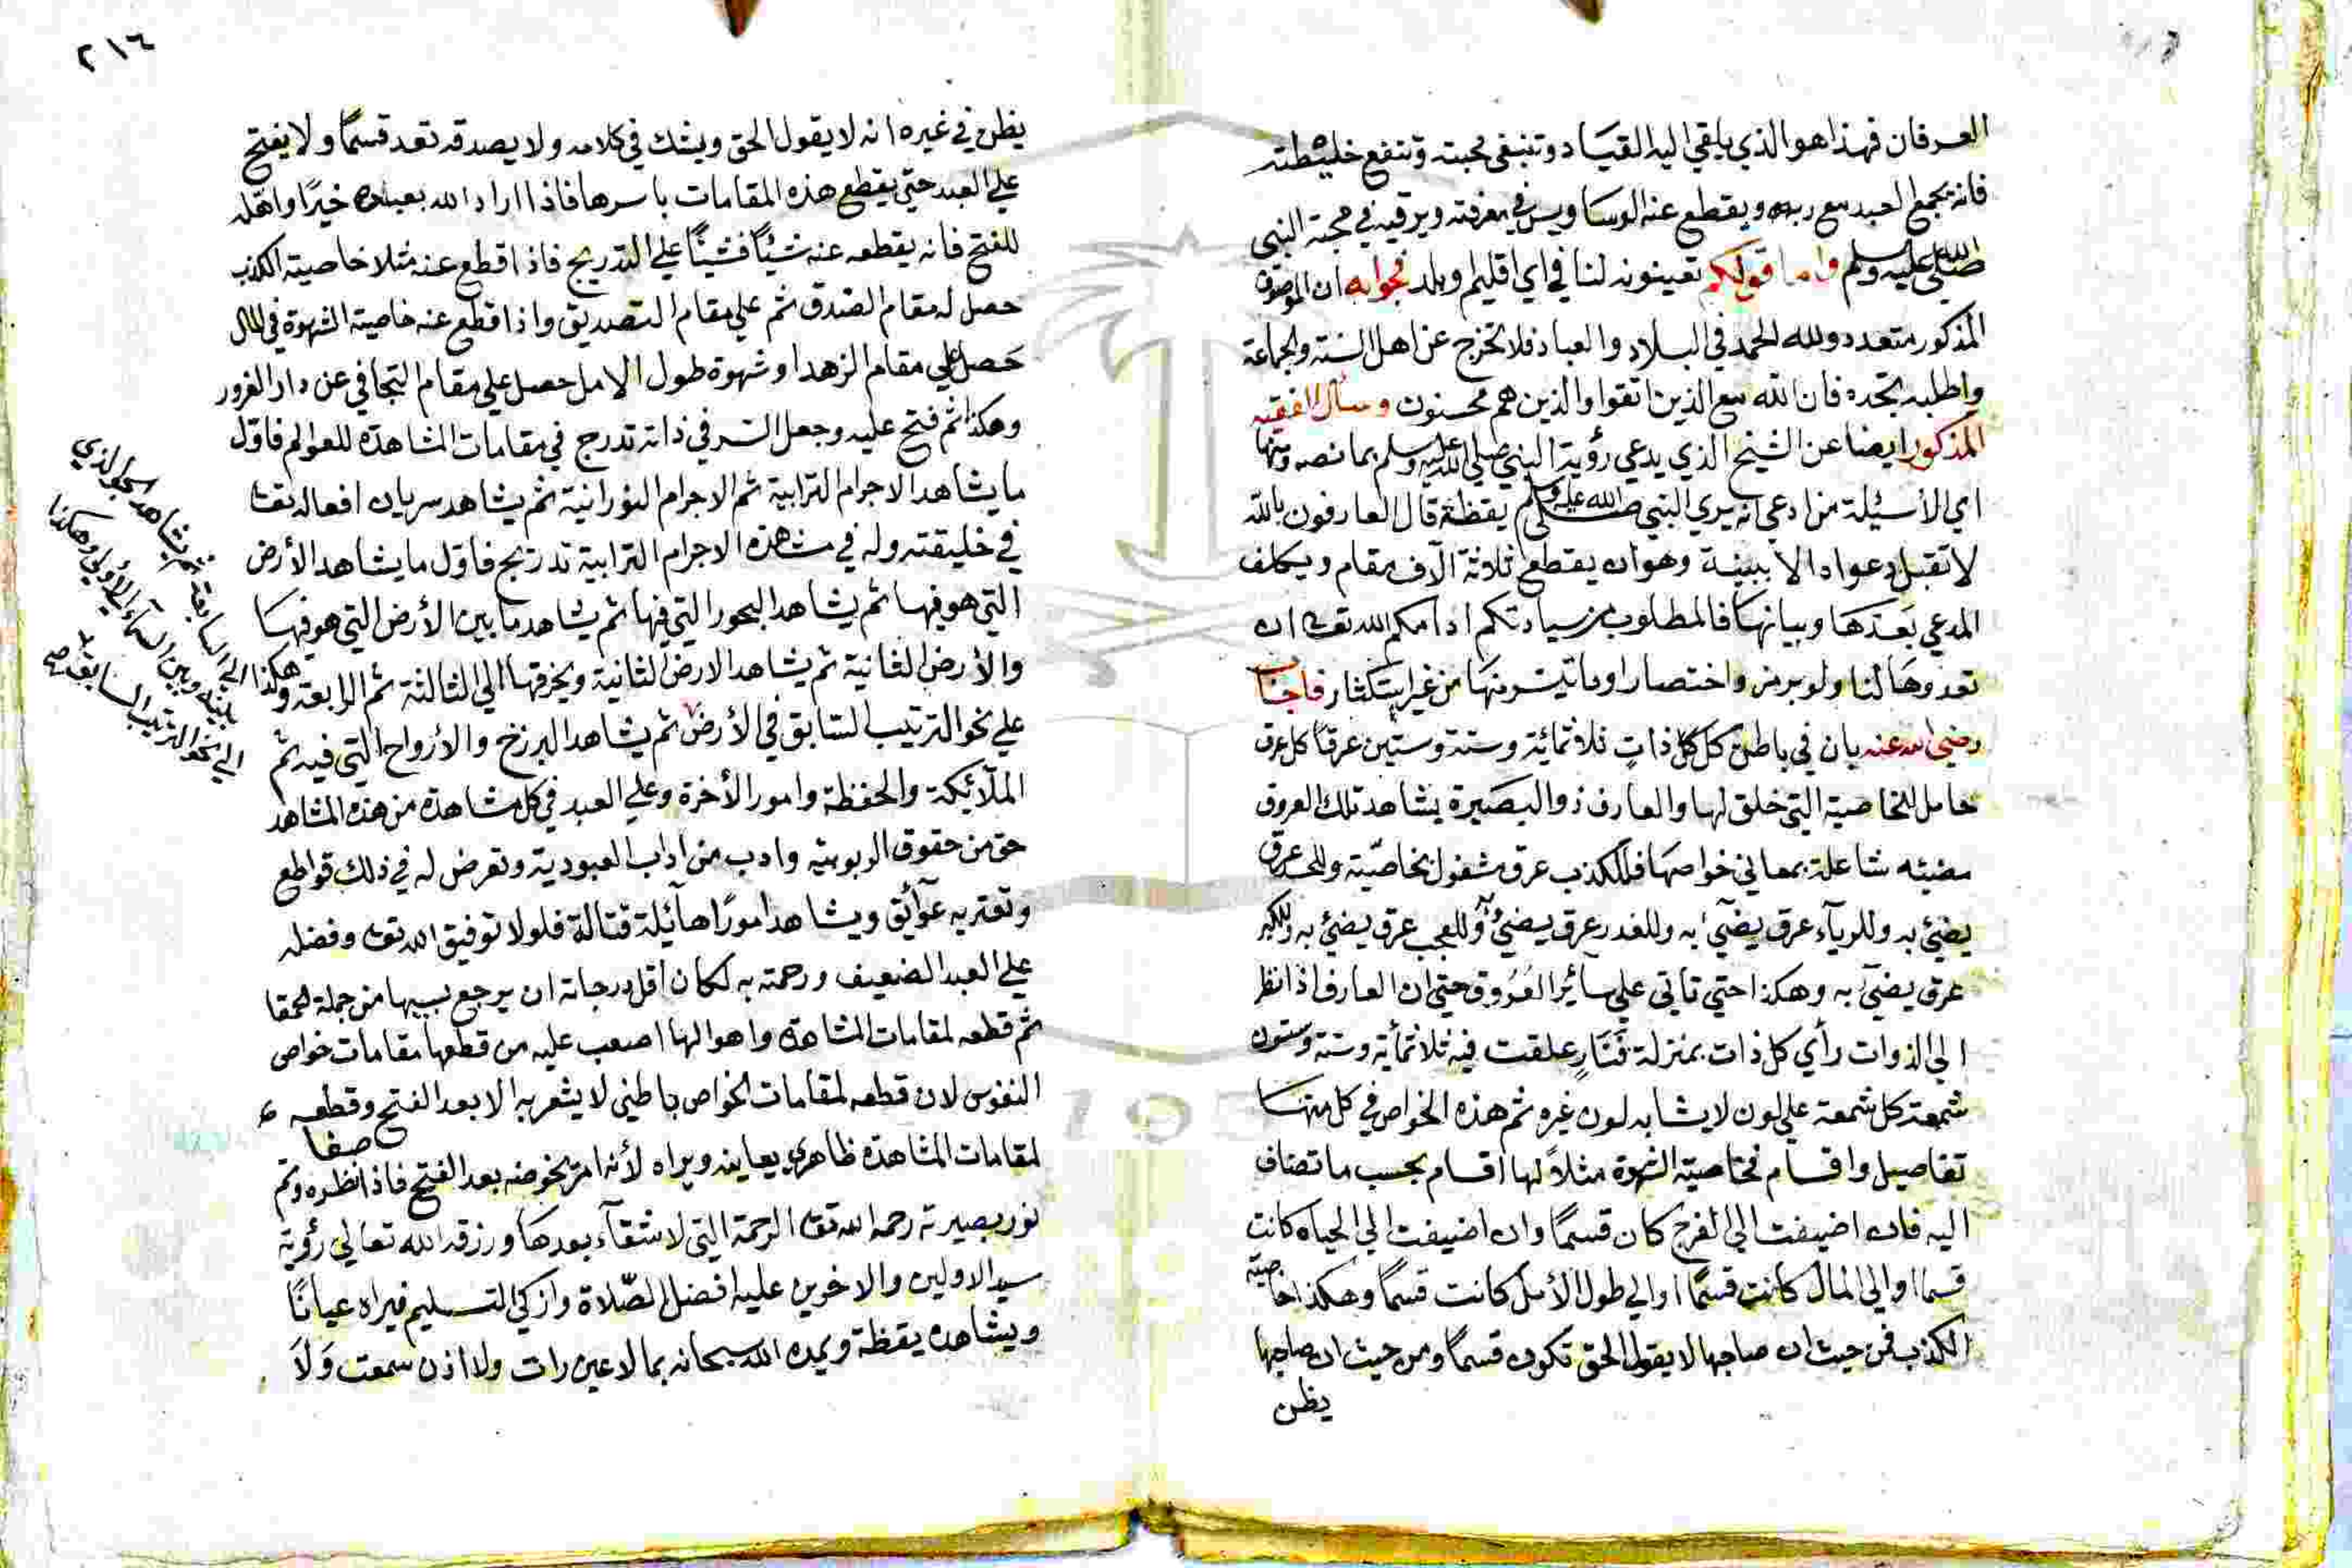 العرفان فهذا هو الذي يلقي اليه القياد وتنبغي محبته وتنفع خلطته
فانه يجمع العبد مع ربه ويقطع عنه الوساويس في معرفته ويرقيه في محبة النبي
صلى الله عليه وسلم واما قولكم تعينونه لنا في اي اقليم وبلد فجوابه ان الموصوف
المذكور متعدد ولله الحمد في البلاد والعباد فلا تخرج عن اهل السنة والجماعة
واطلبه تجده فان الله مع الذين اتقوا والذين هم محسنون وسأل الفقيه
المذكور ايضا عن الشيخ الذي يدعي رؤية النبي صلى الله عليه وسلم بما نصه ومنها
اي الأسئلة من ادعى انه يري النبي صلى الله عليه وسلم يقظة قال العارفون بالله
لا تقبل دعواه الا ببينة وهو ان يقطع ثلاثة آلاف مقام ويكلف
المدعي بعدها وبيانها فالمطلوب من سيادتكم ادامكم الله تعالى ان
تعدوها لنا ولو برمز واختصار او ما تيسر منها من غير استكثار فاجاب
رضي الله عنه بان في باطن كل ذات ثلاثمائة وستة وستين عرقا كل عرق
حامل للخاصية التي خلق لها والعارف ذو البصيرة يشاهد تلك العروق
مضيئه شاعلة بمعاني خواصها فللكذب عرق مشغول بخاصيته وللحسد عرق
يضئ به وللريآء عرق يضئ به وللغدر عرق يضئ به وللعجب عرق يضئ به وللكبر
عرق يضئ به وهكذا حتي تاتي علي سآئر العروق حتي ان العارف اذا نظر
الي الذوات رأي كل ذات بمنزلة فنار علقت فيه ثلاثمائة وستة وستون
شمعة كل شمعة علي لون لا يشابه لون غيره ثم هذه الخواص في كل منها
تفاصيل واقسام فخاصية الشهوة مثلاً لها اقسام بحسب ما تضاف
اليه فان اضيفت الي الفرج كان قسمًا وان اضيفت الي الحياه كانت
قسما والي المال كانت قسمًا والي طول الأمل كانت قسمًا وهكذا خاصية
الكذب فمن حيث ان صاحبها لا يقول الحق تكون قسمًا ومن حيث ان صاحبها
يظن
٢١٦
يظن في غيره انه لا يقول الحق ويشك في كلامه ولا يصدقه تعد قسمًا ولا يفتح
علي العبد حتي يقطع هذه المقامات باسرها فاذا اراد الله بعبده خيرًا واهله
للفتح فانه يقطعه عنه شيئًا فشيئًا علي التدريج فاذا قطع عنه مثلا خاصية الكذب
حصل له مقام الصدق ثم علي مقام التصديق واذا قطع عنه خاصية الشهوة في المال
حصل علي مقام الزهد او شهوة طول الامل حصل علي مقام التجافي عن دار الغرور
وهكذا ثم فتح عليه وجعل السر في ذاته تدرج في مقامات المشاهدة للعوالم فاول
ما يشاهد الاجرام الترابية ثم الاجرام النورانية ثم يشاهد سريان افعاله تعالى
في خليقته وله في مشاهدة الاجرام الترابية تدريج فاول ما يشاهد الأرض
التي هو فيها ثم يشاهد البحور التي فيها ثم يشاهد ما بين الأرض التي هو فيها
والأرض الثانية ثم يشاهد الارض الثانية ويخرقها الي الثالثة ثم الرابعة وهكذا الي السابعة ثم يشاهد الجو الذي
بينه وبين السمآء الأولي وهكذا
الي نحو الترتيب السابق
علي نحو الترتيب السابق في الأرض ثم يشاهد البرزخ والأرواح التي فيه ثم
الملآئكة والحفظة وامور الأخرة وعلي العبد في كل مشاهدة من هذه المشاهد
حق من حقوق الربوبيه وادب من اداب العبودية وتعرض له في ذلك قواطع
وتعتريه عوآئق ويشاهد امورًا هآئلة قتالة فلولا توفيق الله تعالى وفضله
علي العبد الضعيف ورحمته به لكان اقل درجاته ان يرجع بسببها من جملة الحمقا
ثم قطعه لمقامات المشاهدة واهوالها اصعب عليه من قطعها مقامات خواص
النفوس لان قطعه لمقامات الخواص باطني لا يشعر به الا بعد الفتح وقطعه
لمقامات المشاهدة ظاهري يعاينه ويراه لأنه امر يخوضه بعد الفتح فاذا صفا نظره وتم
نور بصيرته رحمه الله تعالى الرحمة التي لا شقآء بعدها ورزقه الله تعالي رؤية
سيد الاولين والاخرين عليه افضل الصّلاة وازكي التسليم فيراه عيانًا
ويشاهده يقظة ويمده الله سبحانه بما لا عين رات ولا اذن سمعت وَلاَ